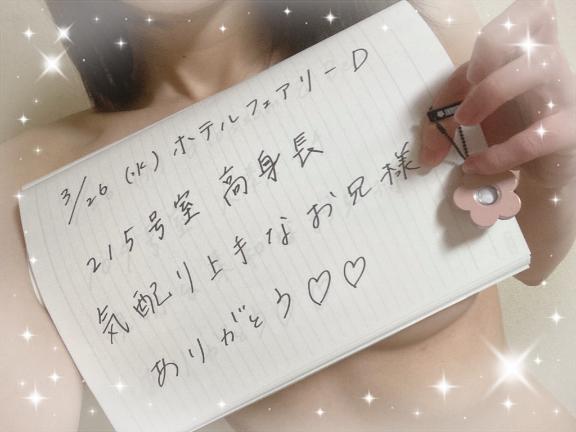 3/26 (水) ホテルフェアリーD
215号室 高身長
気配り上手なお兄様
ありがとう♡♡